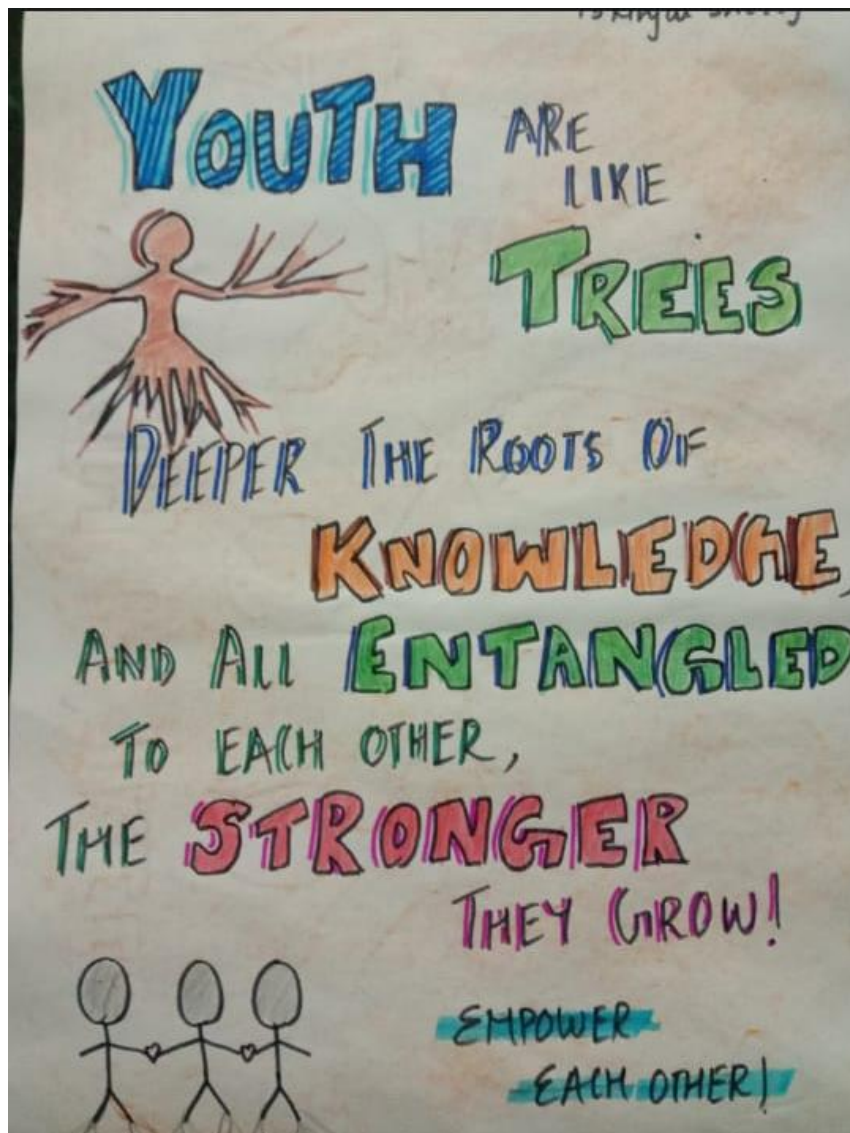 YOUTH ARE
LIKE
TREES
DEEPER THE ROOTS OF
KNOWLEDGE,
AND ALL ENTANGLED
TO EACH OTHER,
THE STRONGER
THEY GROW!
EMPOWER
EACH OTHER!